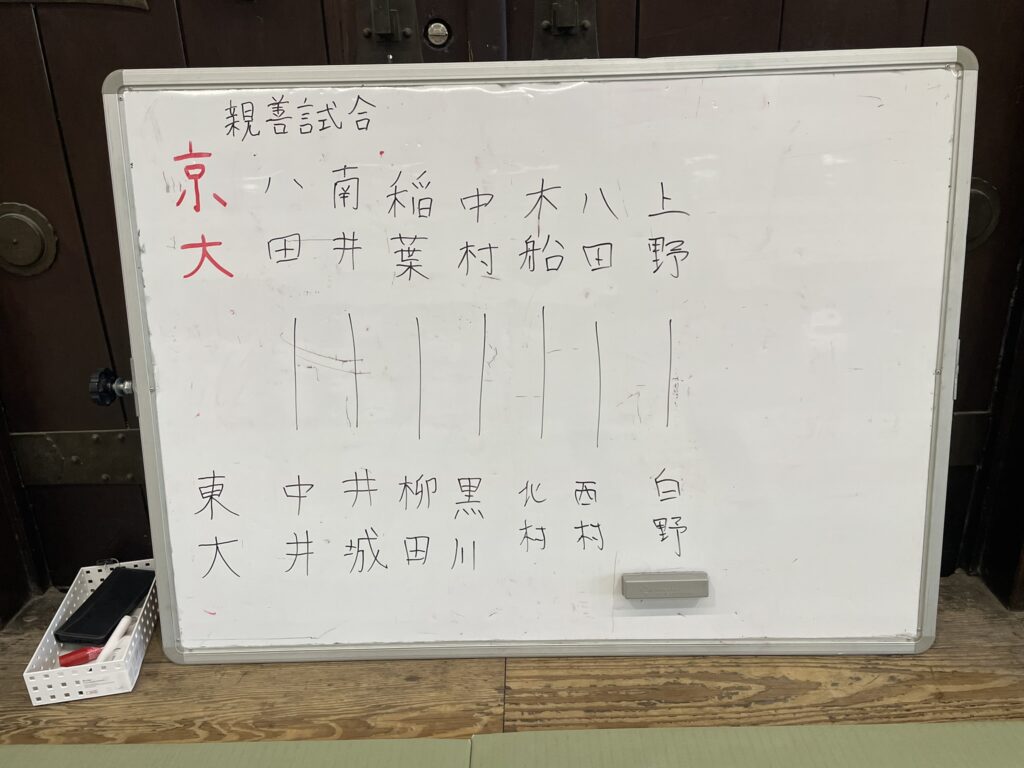 親善試合
京大 八田 南井 稲葉 中村 木船 八田 上野
東大 中井 井城 柳田 黒川 北村 西村 白野